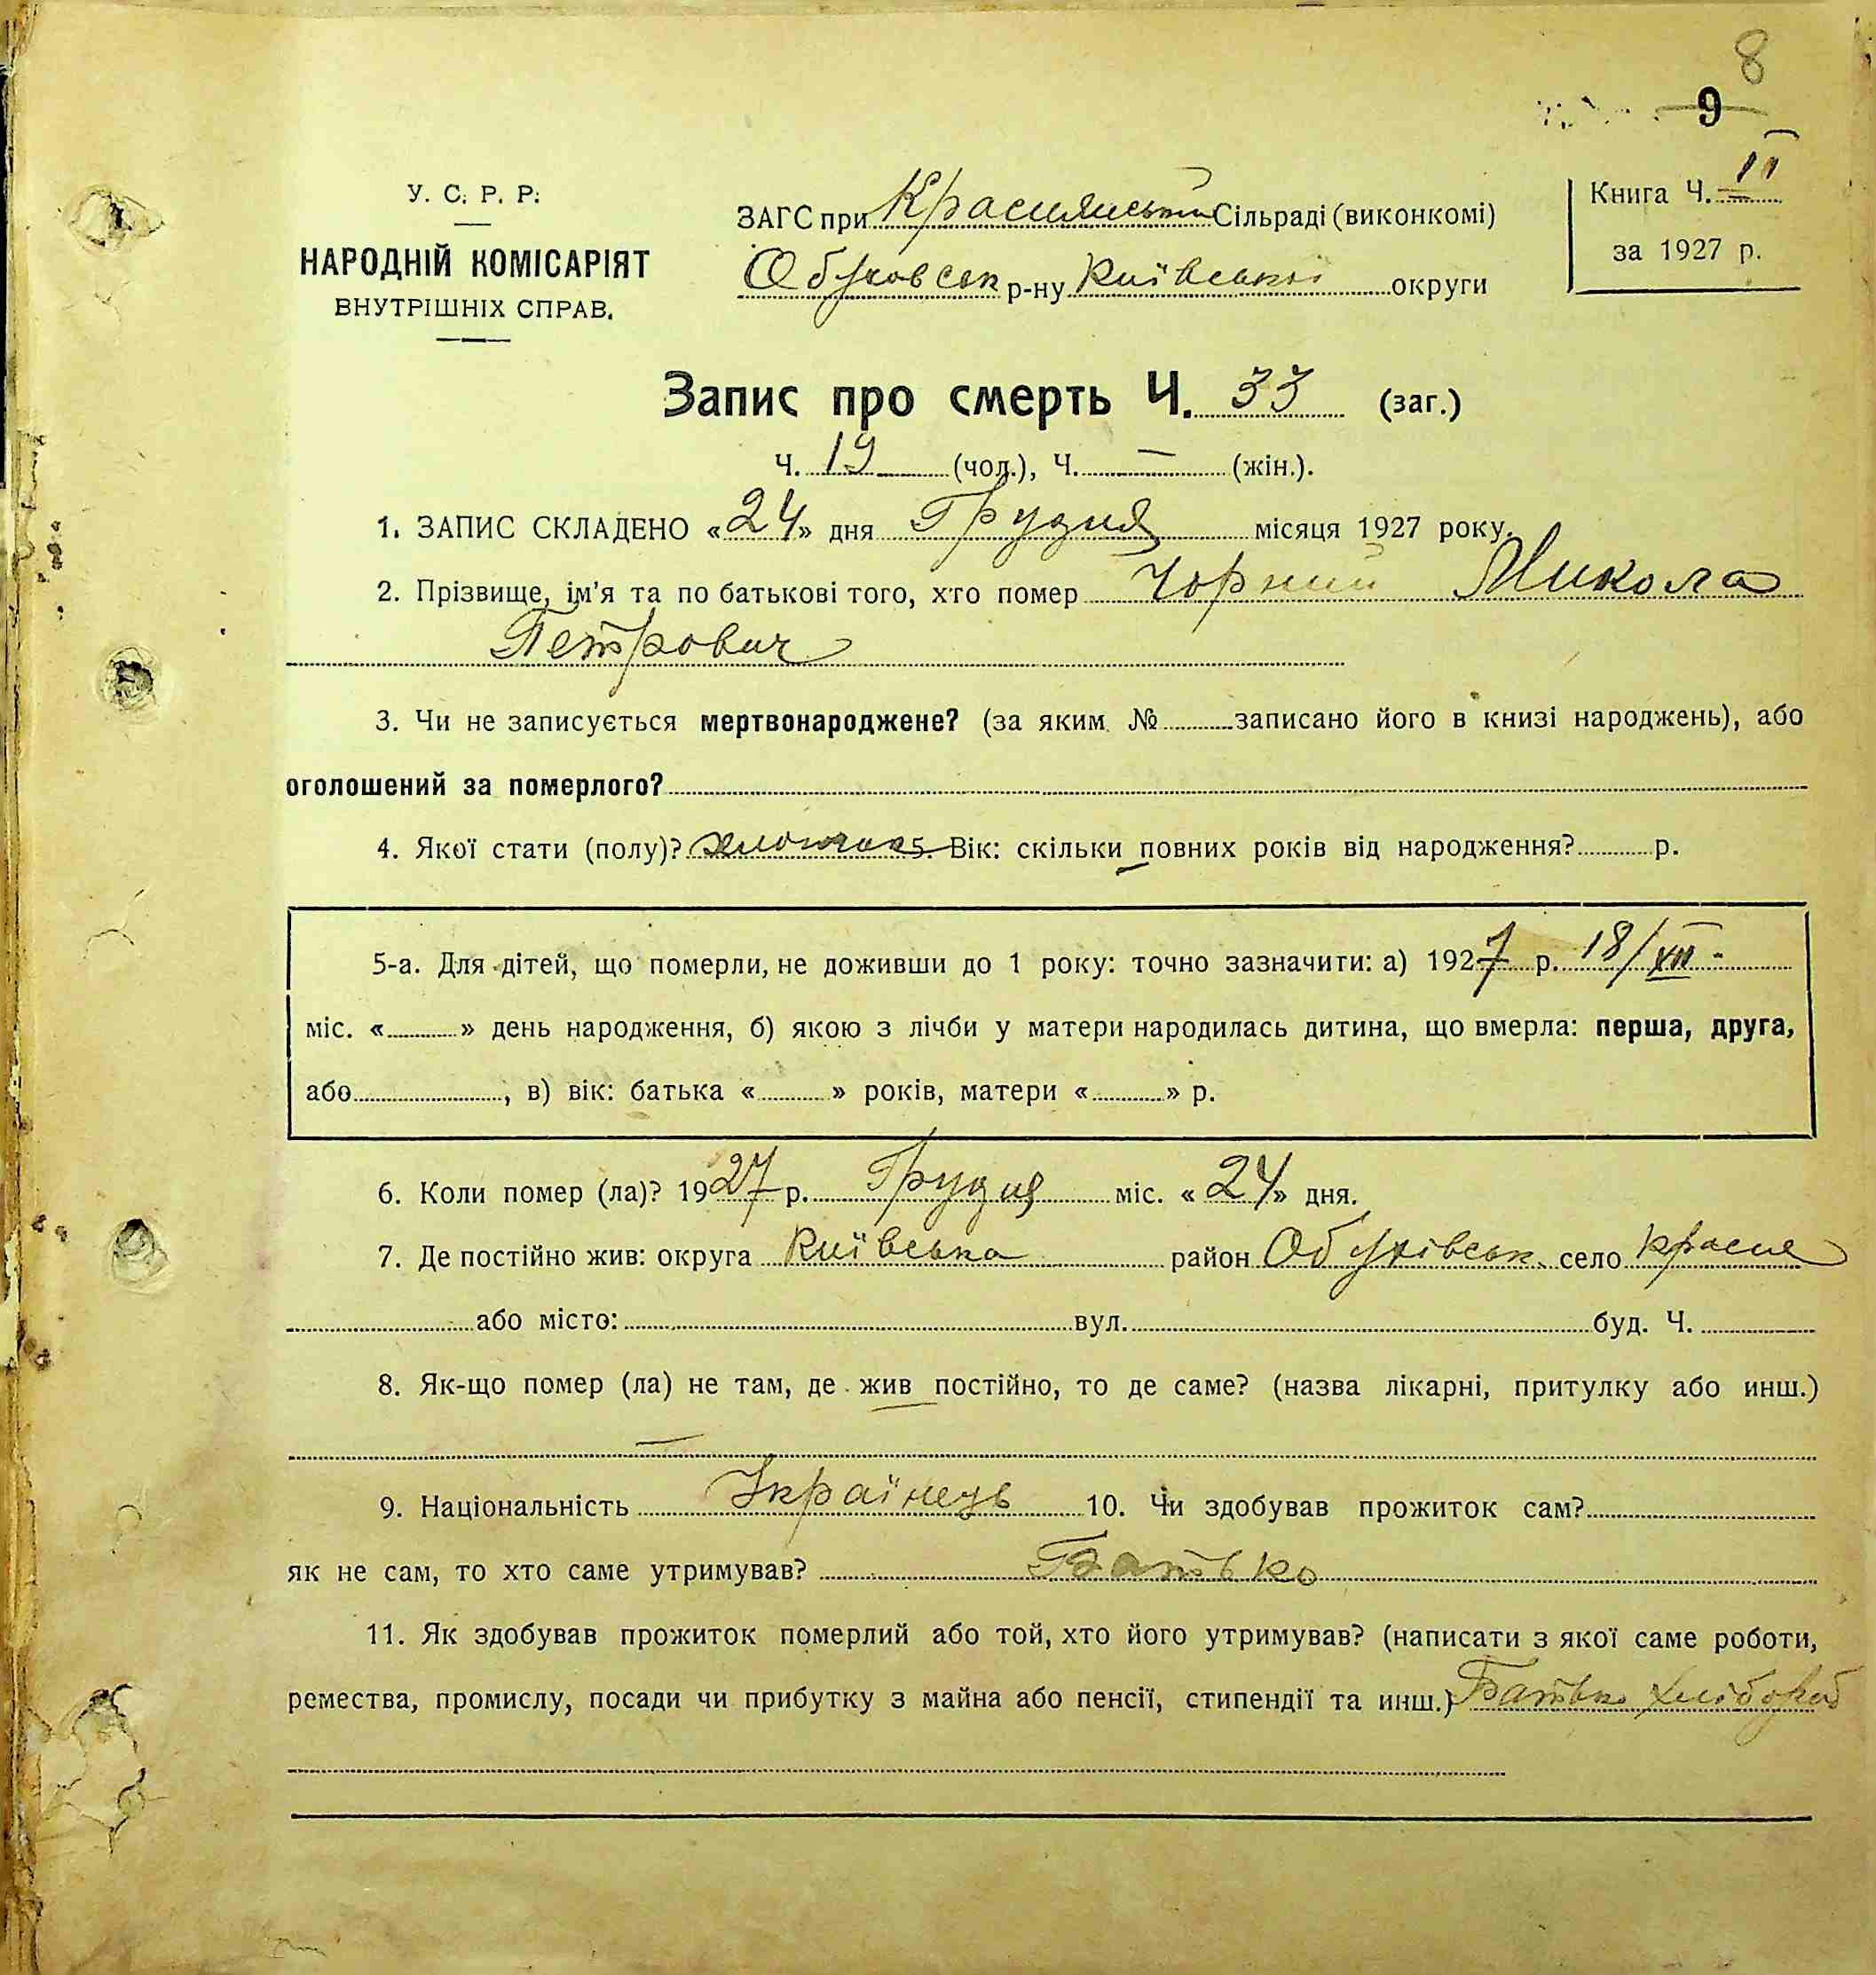 8
9
У. С. Р. Р.
НАРОДНІЙ КОМІСАРІЯТ
ВНУТРІШНІХ СПРАВ.
ЗАГС при Краснянській Сільраді (виконкомі)
Обуховськ р-ну Київської округи
Книга Ч. II
за 1927 р.
Запис про смерть Ч. 33 (заг.)
Ч. 19 (чол.), Ч. — (жін.).
1. ЗАПИС СКЛАДЕНО «24» дня Грудня місяця 1927 року.
2. Прізвище, ім'я та по батькові того, хто помер Чорний Микола
Петрович
3. Чи не записується мертвонароджене? (за яким № записано його в книзі народжень), або
оголошений за померлого?
4. Якої стати (полу)? 5. Вік: скільки повних років від народження? р.
5-а. Для дітей, що померли, не доживши до 1 року: точно зазначити: а) 1927 р. 18/XII -
міс. « » день народження, б) якою з лічби у матери народилась дитина, що вмерла: перша, друга,
або , в) вік: батька « » років, матери « » р.
6. Коли помер (ла)? 1927 р. Грудня міс. «24» дня.
7. Де постійно жив: округа Київська район Обухівськ. село Красне
або місто: вул. буд. Ч.
8. Як-що помер (ла) не там, де жив постійно, то де саме? (назва лікарні, притулку або инш.)
—
9. Національність Українець 10. Чи здобував прожиток сам?
як не сам, то хто саме утримував? Батько
11. Як здобував прожиток померлий або той, хто його утримував? (написати з якої саме роботи,
ремества, промислу, посади чи прибутку з майна або пенсії, стипендії та инш.) Батько хлібороб